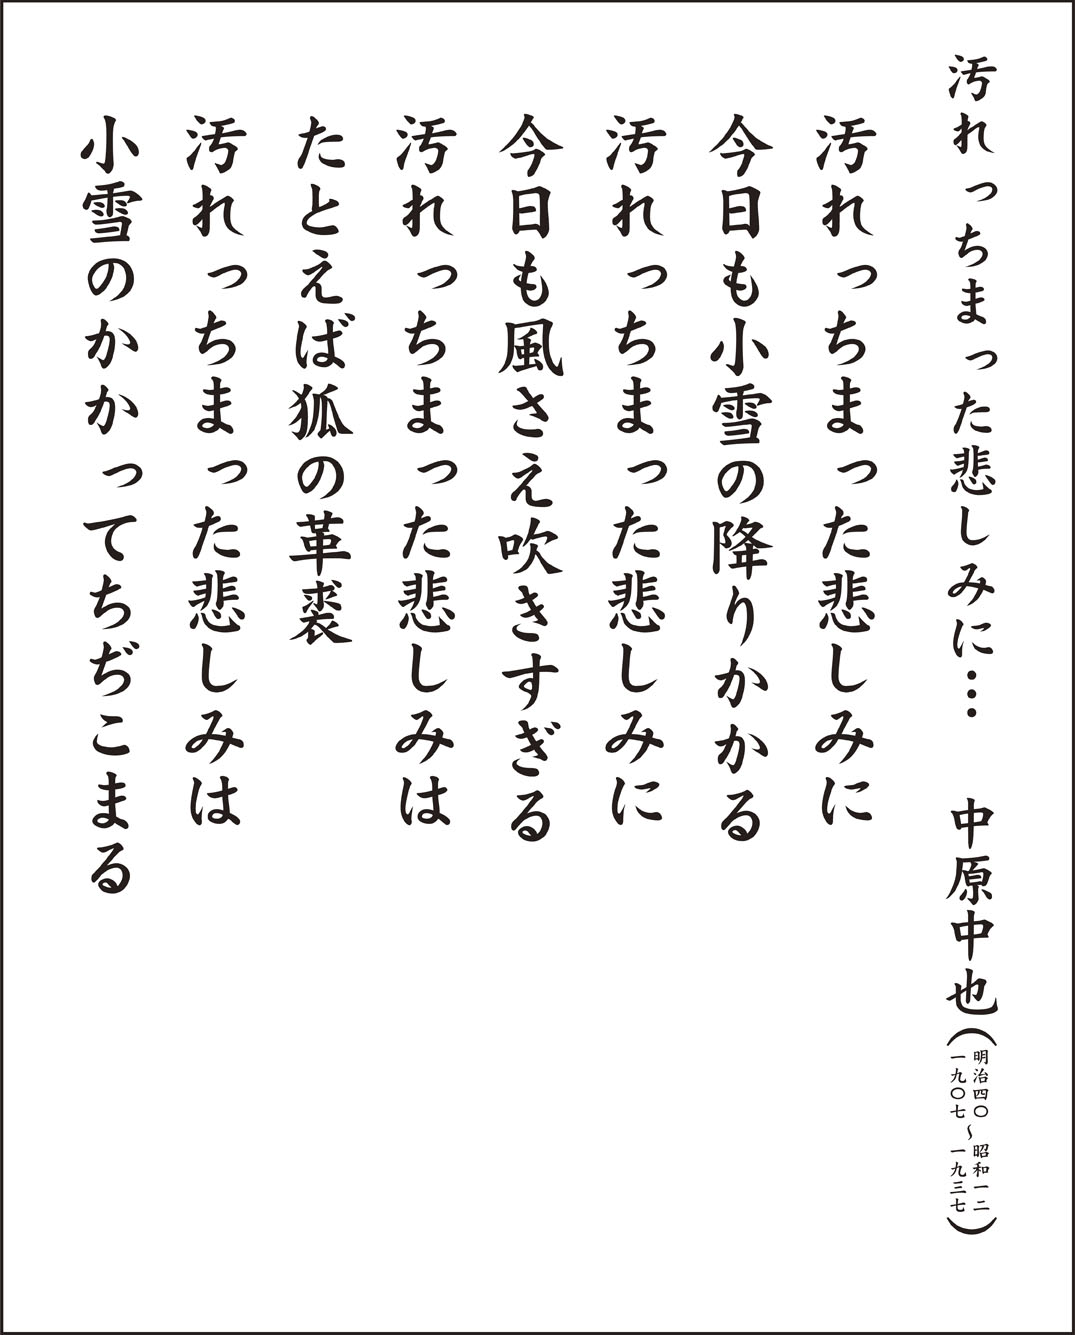 汚れっちまった悲しみに… 中原中也（明治四〇～昭和一二 一九〇七～一九三七）
汚れっちまった悲しみに
今日も小雪の降りかかる
汚れっちまった悲しみに
今日も風さえ吹きすぎる
汚れっちまった悲しみは
たとえば狐の革裘
汚れっちまった悲しみは
小雪のかかってちぢこまる